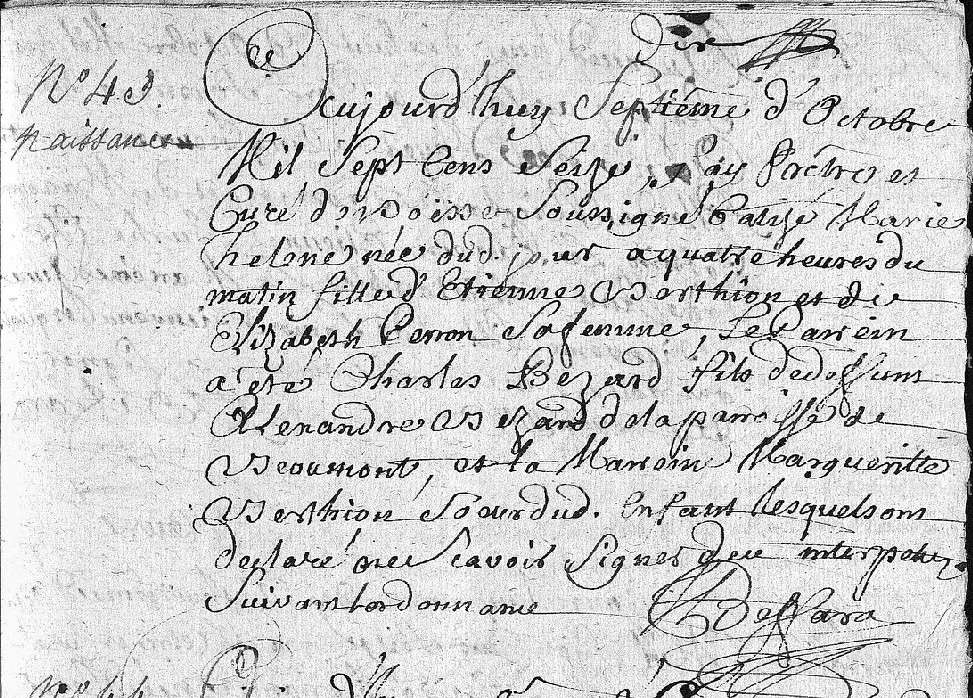 N° 43.
naissance
Aujourd'huy Septiéme d'Octobre
Mil Sept Cens Seize, J'ay prêtre et
Curé de Soussigné Batizé Marie
helene née dud. jour a quatre heures du
matin fille d'Etienne Berthion et de
Elizabeth Perron Sa femme, Le Parrein
a été Charles Bezard fils de deffunt
Alexandre Bezard de la parroisse de
Beaumont, et la Marreine Margueritte
Berthion Soeur dud. Enfant lesquels ont
declaré ne Scavoir Signer de ce interpelez
Suivant lordonnance Dessara